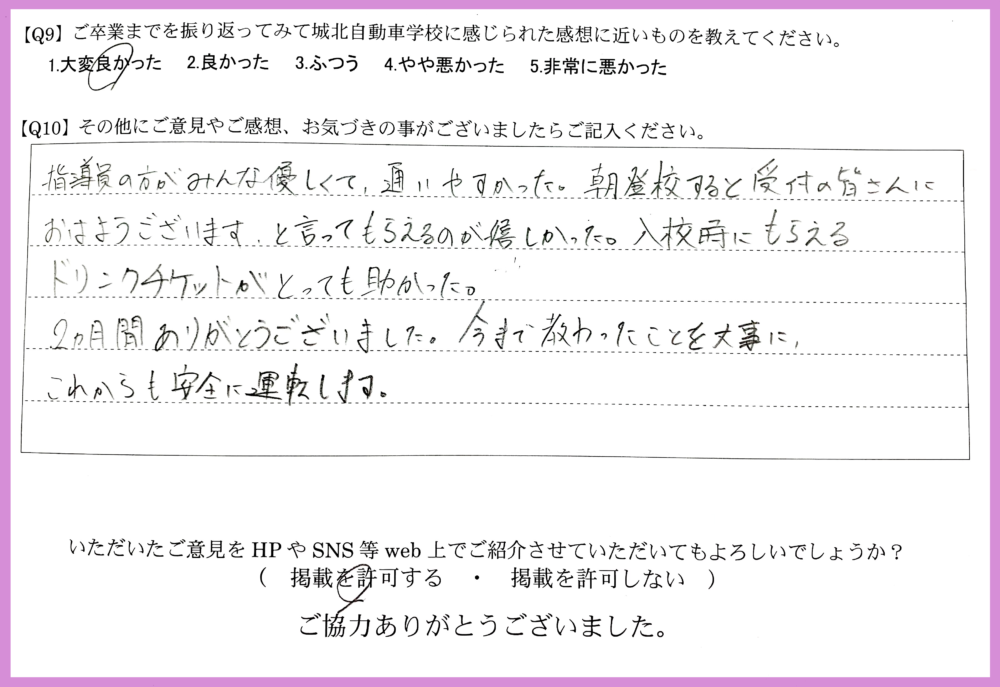 【Q9】ご卒業までを振り返ってみて城北自動車学校に感じられた感想に近いものを教えてください。
1.大変良かった 2.良かった 3.ふつう 4.やや悪かった 5.非常に悪かった
【Q10】その他にご意見やご感想、お気づきの事がございましたらご記入ください。
指導員の方がみんな優しくて、通いやすかった。朝登校すると受付の皆さんに
おはようございます、と言ってもらえるのが嬉しかった。入校時にもらえる
ドリンクチケットがとっても助かった。
2ヵ月間ありがとうございました。今まで教わったことを大事に、
これからも安全に運転します。
いただいたご意見をHPやSNS等web上でご紹介させていただいてもよろしいでしょうか?
( 掲載を許可する ・ 掲載を許可しない )
ご協力ありがとうございました。